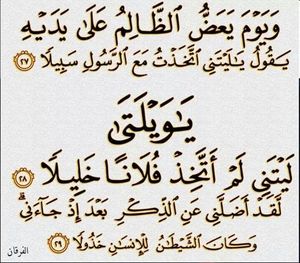 وَيَوْمَ يَعَضُّ ٱلظَّالِمُ عَلَىٰ يَدَيْهِ
يَقُولُ يَٰلَيْتَنِى ٱتَّخَذْتُ مَعَ ٱلرَّسُولِ سَبِيلًا ٢٧
يَٰوَيْلَتَىٰ
لَيْتَنِى لَمْ أَتَّخِذْ فُلَانًا خَلِيلًا ٢٨
لَّقَدْ أَضَلَّنِى عَنِ ٱلذِّكْرِ بَعْدَ إِذْ جَآءَنِى ۗ
وَكَانَ ٱلشَّيْطَٰنُ لِلْإِنسَٰنِ خَذُولًا ٢٩
الفرقان